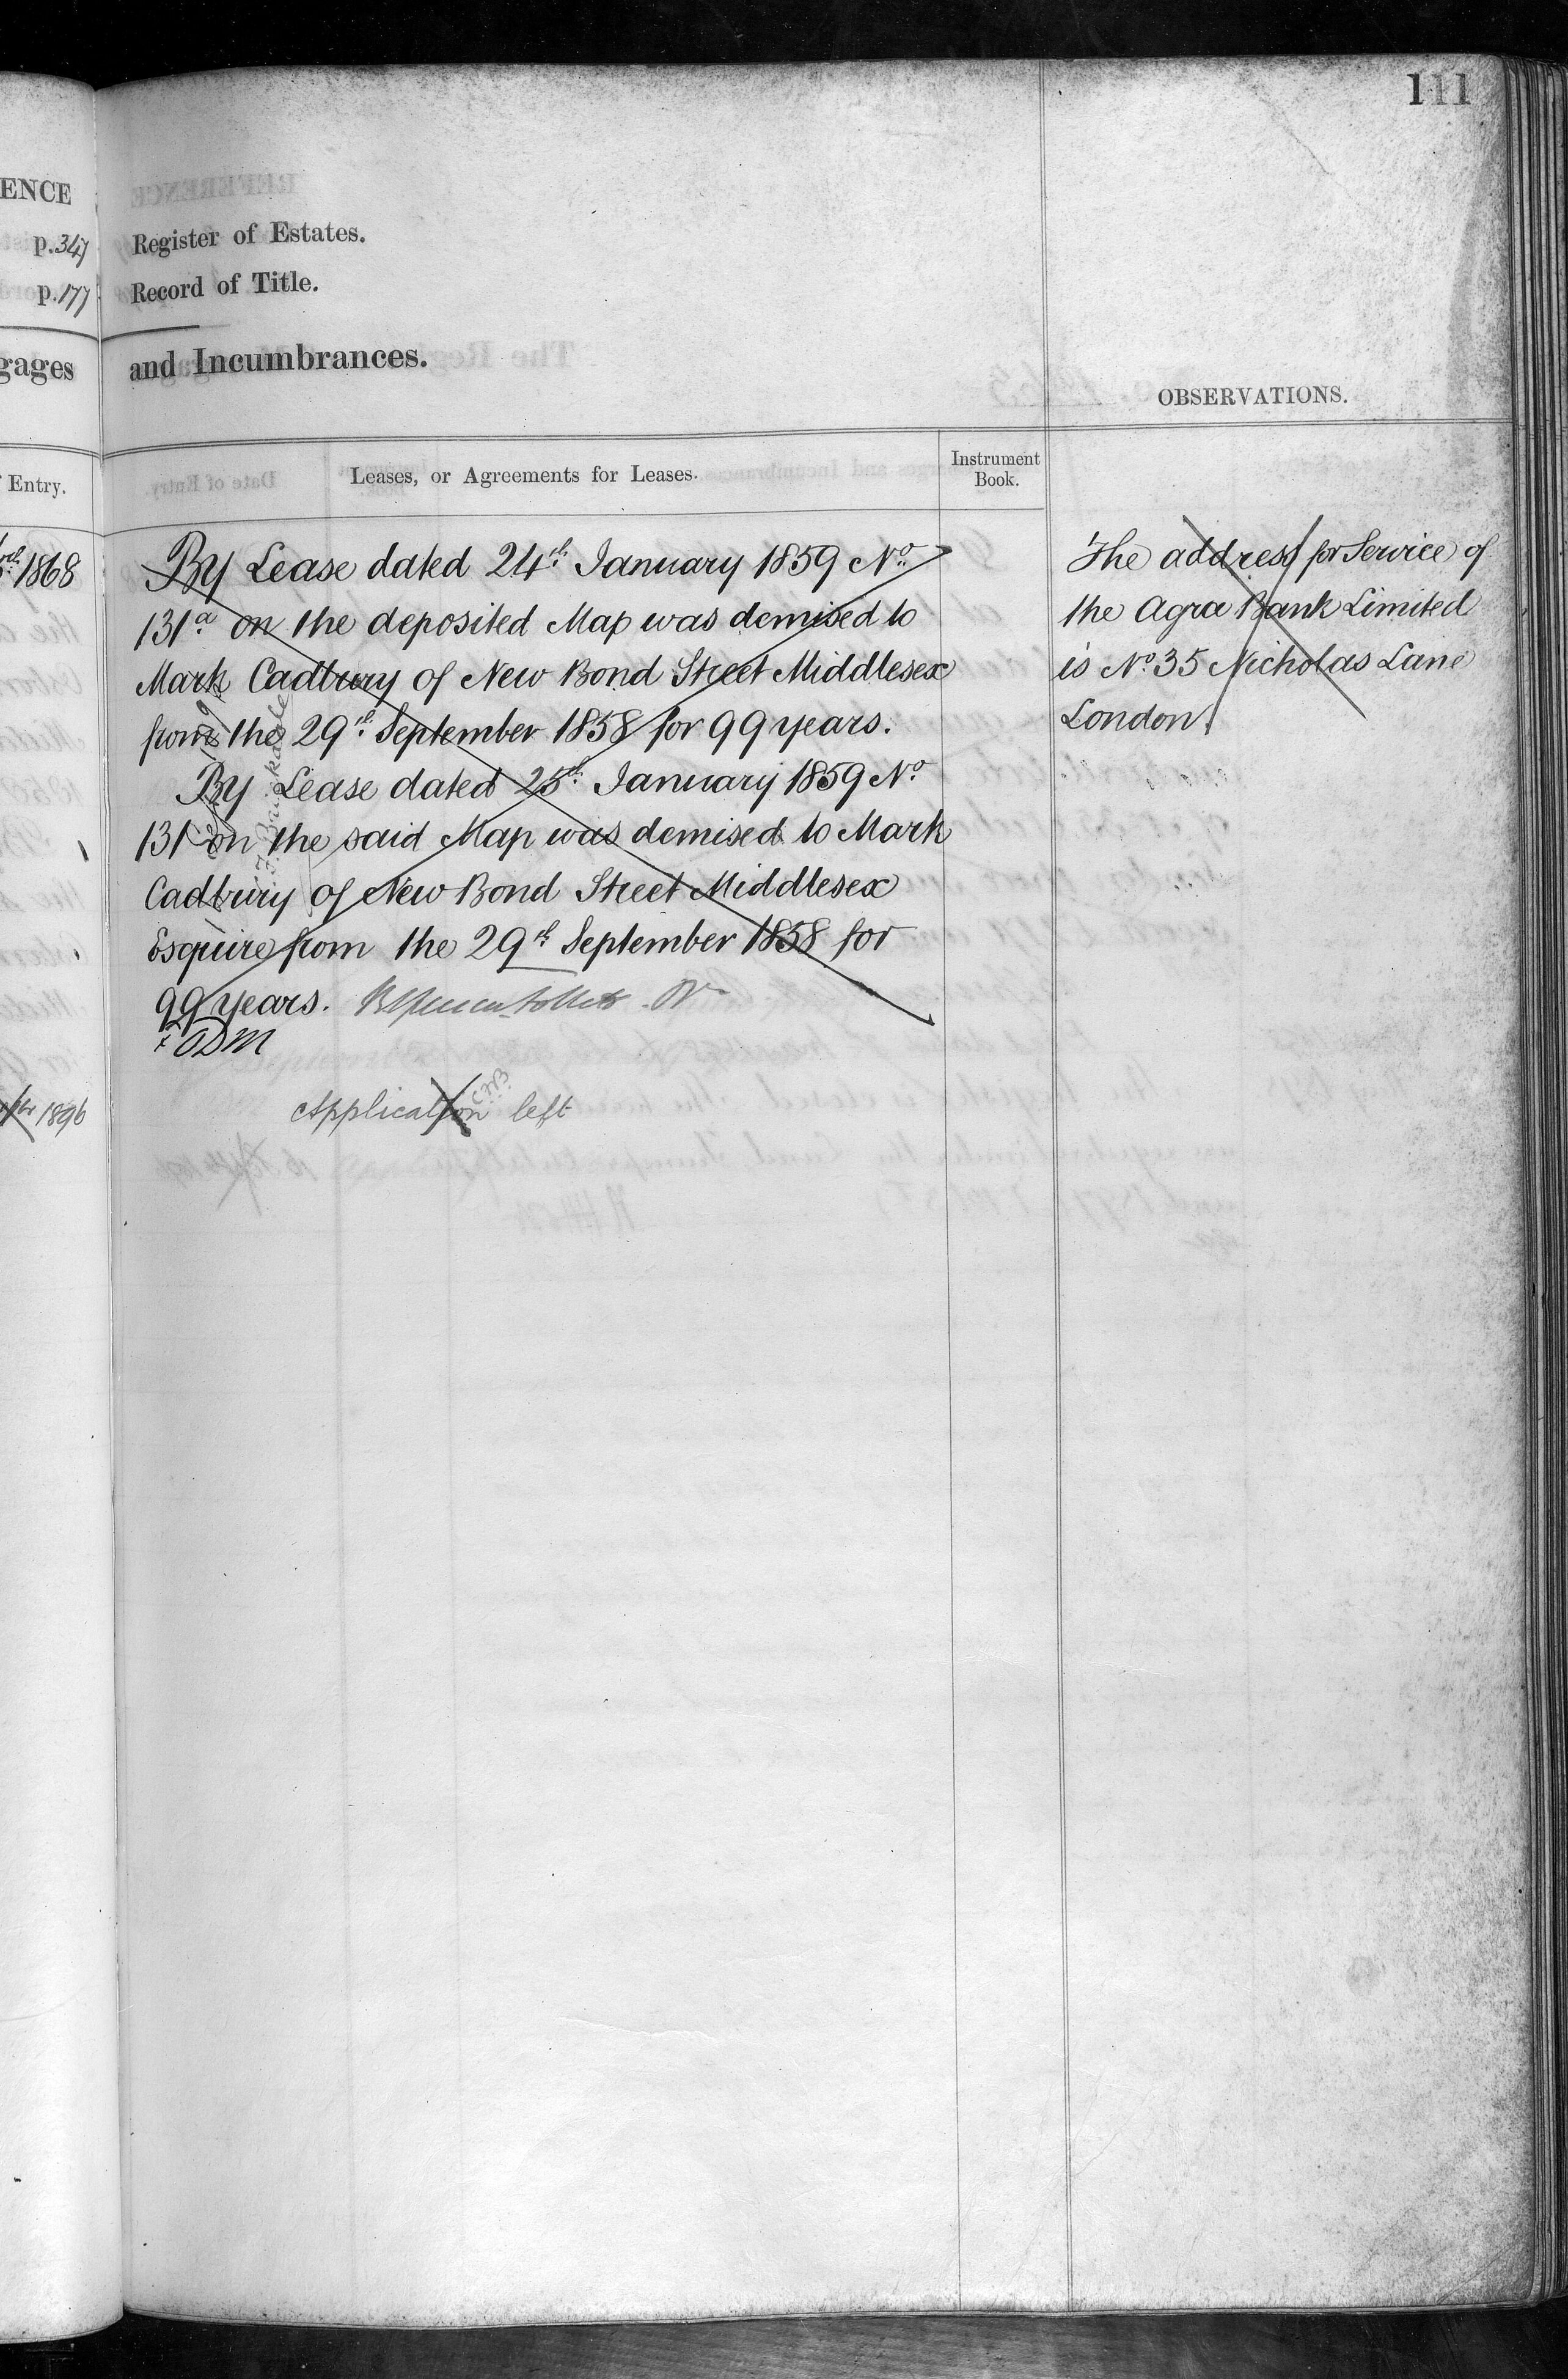 111
ENCE
p. 347
p. 177
gages
Entry.
1868
1896
Register of Estates.
Record of Title.
and Incumbrances.
OBSERVATIONS.
Leases, or Agreements for Leases.
Instrument
Book.
By Lease dated 24th January 1859 No.
131a on the deposited Map was demised to
Mark Cadbury of New Bond Street Middlesex
from the 29th September 1858 for 99 years.
By Lease dated 25th January 1859 No.
131 on the said Map was demised to Mark
Cadbury of New Bond Street Middlesex
Esquire from the 29th September 1858 for
99 years.
Application left
The address for Service of
the Agra Bank Limited
is No. 35 Nicholas Lane
London.